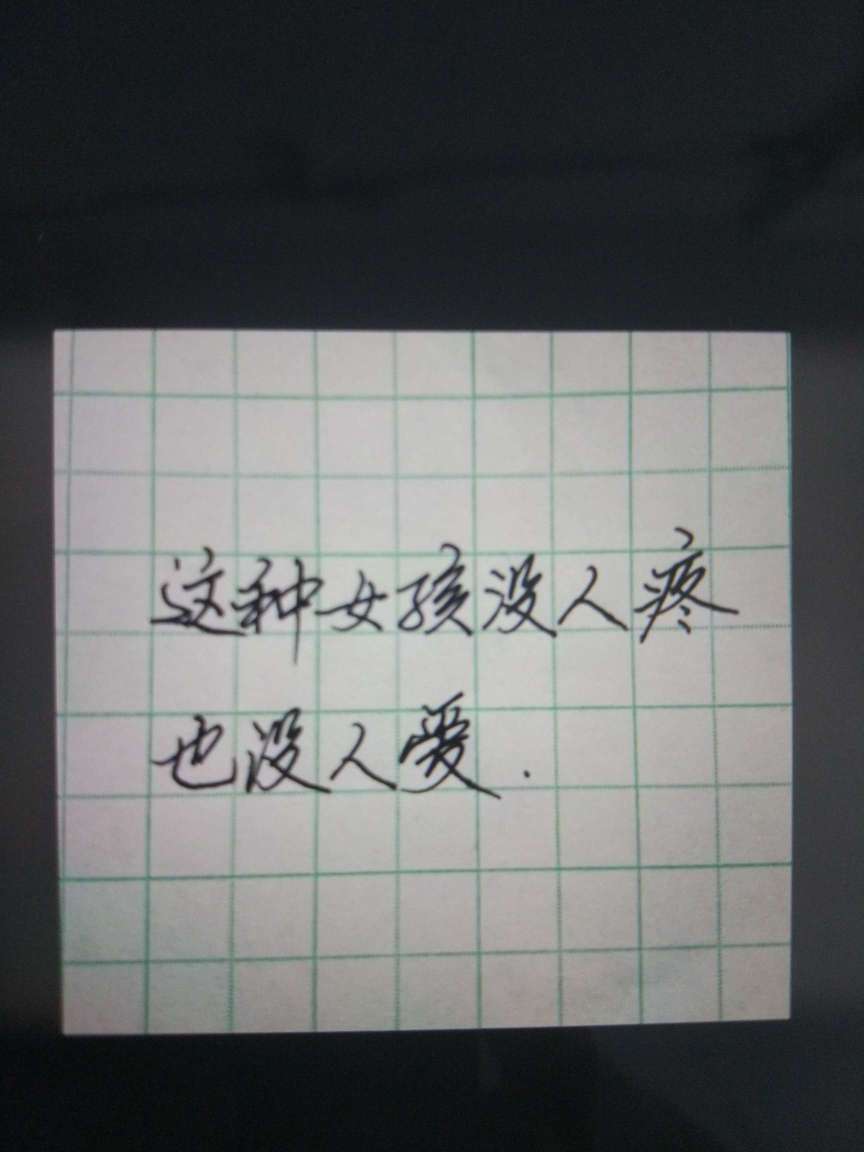 这种女孩没人疼
也没人爱.